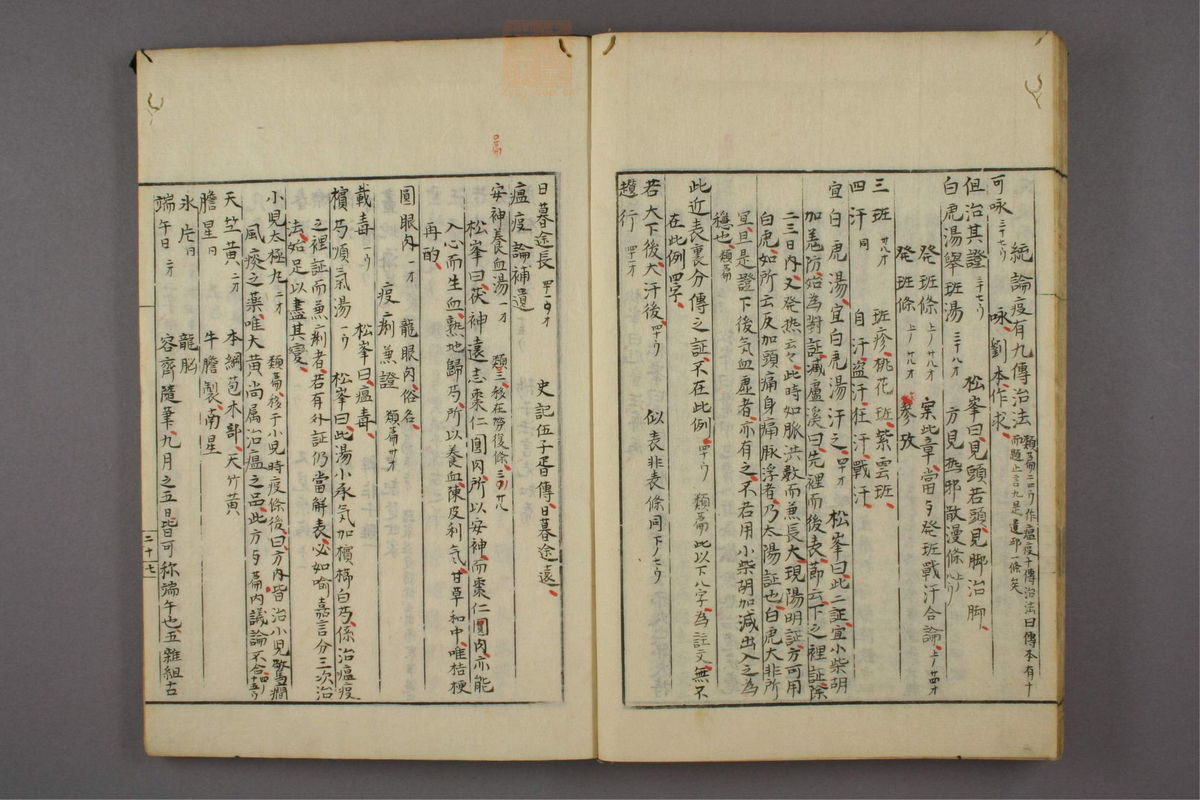 統論疫有九傳治法 類篇二四ウ作瘟疫十傳治法曰傳本有十
而題止言九是遺却一條矣
可咏 三十七ウ 咏劉本作求
但治其證 三十七ウ 松峯曰見頭若頭見脚治脚
白虎湯舉斑湯 三十八オ 方見熱邪散漫條 上ノ八ウ
發斑條 上ノ廿八オ 案此章當与發斑戰汗合論 上ノ廿四オ
發斑條 上ノ廿八オ 參攷
三斑 廿八オ 斑疹桃花斑紫雲斑
四汗 同 自汗盜汗狂汗戰汗
宜白虎湯宜白虎湯汗之 四十オ 松峯曰此二証宜小柴胡
加羌防始為對証減盧溪曰先裡而後表節云下之裡証除
二三日内又發热云々此時如脈洪數而兼長大現陽明証方可用
白虎如所云反加頭痛身痛脉浮者乃太陽証也白虎大非所
宜且是證下後气血虛者亦有之不若用小柴胡加減出入之為
穩也 類篇
此近表裏分傳之証不在此例 四十ウ 類篇此以下八字為註文無不
在此例四字
若大下後大汗後 四十ウ 似表非表條同下ノ七ウ
趲行 四十一オ
日暮途長 四十一四オ 史記伍子胥傳日暮途遠
瘟疫論補遺
安神養血湯 一オ 類三核在勞復條 三ノ廿八
松峯曰茯神遠志棗仁圓肉所以安神而棗仁圓肉亦能
入心而生血熟地歸芍所以養血陳皮利气甘草和中唯桔梗
再酌
圓眼肉 一オ 龍眼肉俗名
疫痢兼證 類篇廿オ
載毒 一ウ 松峯曰瘟毒
檳芍順气湯 一ウ 松峯曰此湯小承气加檳榔白芍係治瘟疫
之裡証而兼痢者若有外証仍當解表必如喻嘉言分三次治
法如足以盡其變
小兒太極丸 二オ 類篇核于小兒時疫條後曰方内皆治小兒驚癇
風痰之藥唯大黃尚属治瘟之品此方与篇内議論不合 四ノ十五ウ
天竺黃 二オ 本綱苞木部天竹黃
膽星 同 牛膽製南星
氷片 同 龍腦
端午日 二オ 容齊隨筆九月之五日皆可称端午也五雜組古
二十七